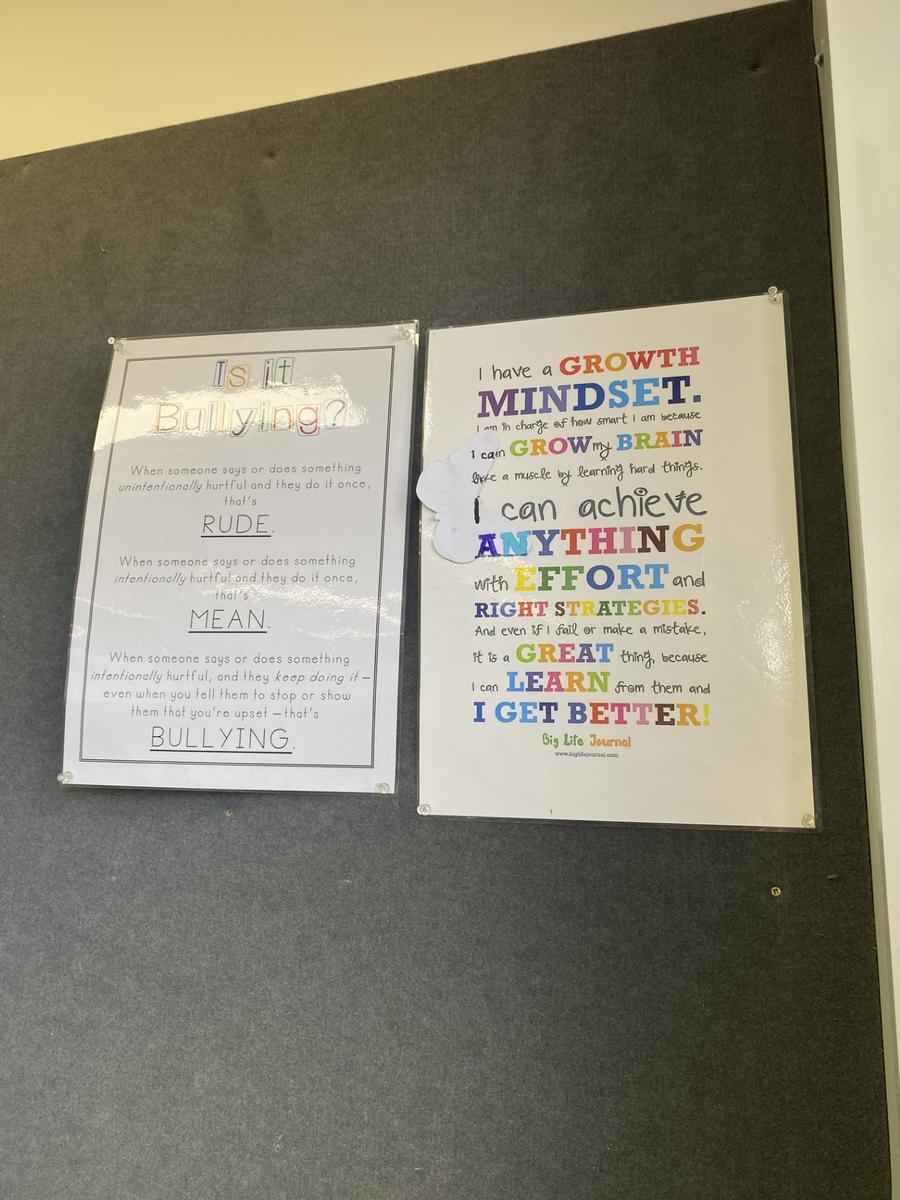 Is it
Bullying?
When someone says or does something
unintentionally hurtful and they do it once,
that's
RUDE.
When someone says or does something
intentionally hurtful and they do it once,
that's
MEAN.
When someone says or does something
intentionally hurtful, and they keep doing it –
even when you tell them to stop or show
them that you're upset – that's
BULLYING.
I have a GROWTH
MINDSET.
I am in charge of how smart I am because
I can GROW my BRAIN
like a muscle by learning hard things.
I can achieve
ANYTHING
with EFFORT and
RIGHT STRATEGIES.
And even if I fail or make a mistake,
it is a GREAT thing, because
I can LEARN from them and
I GET BETTER!
Big Life Journal
www.biglifejournal.com